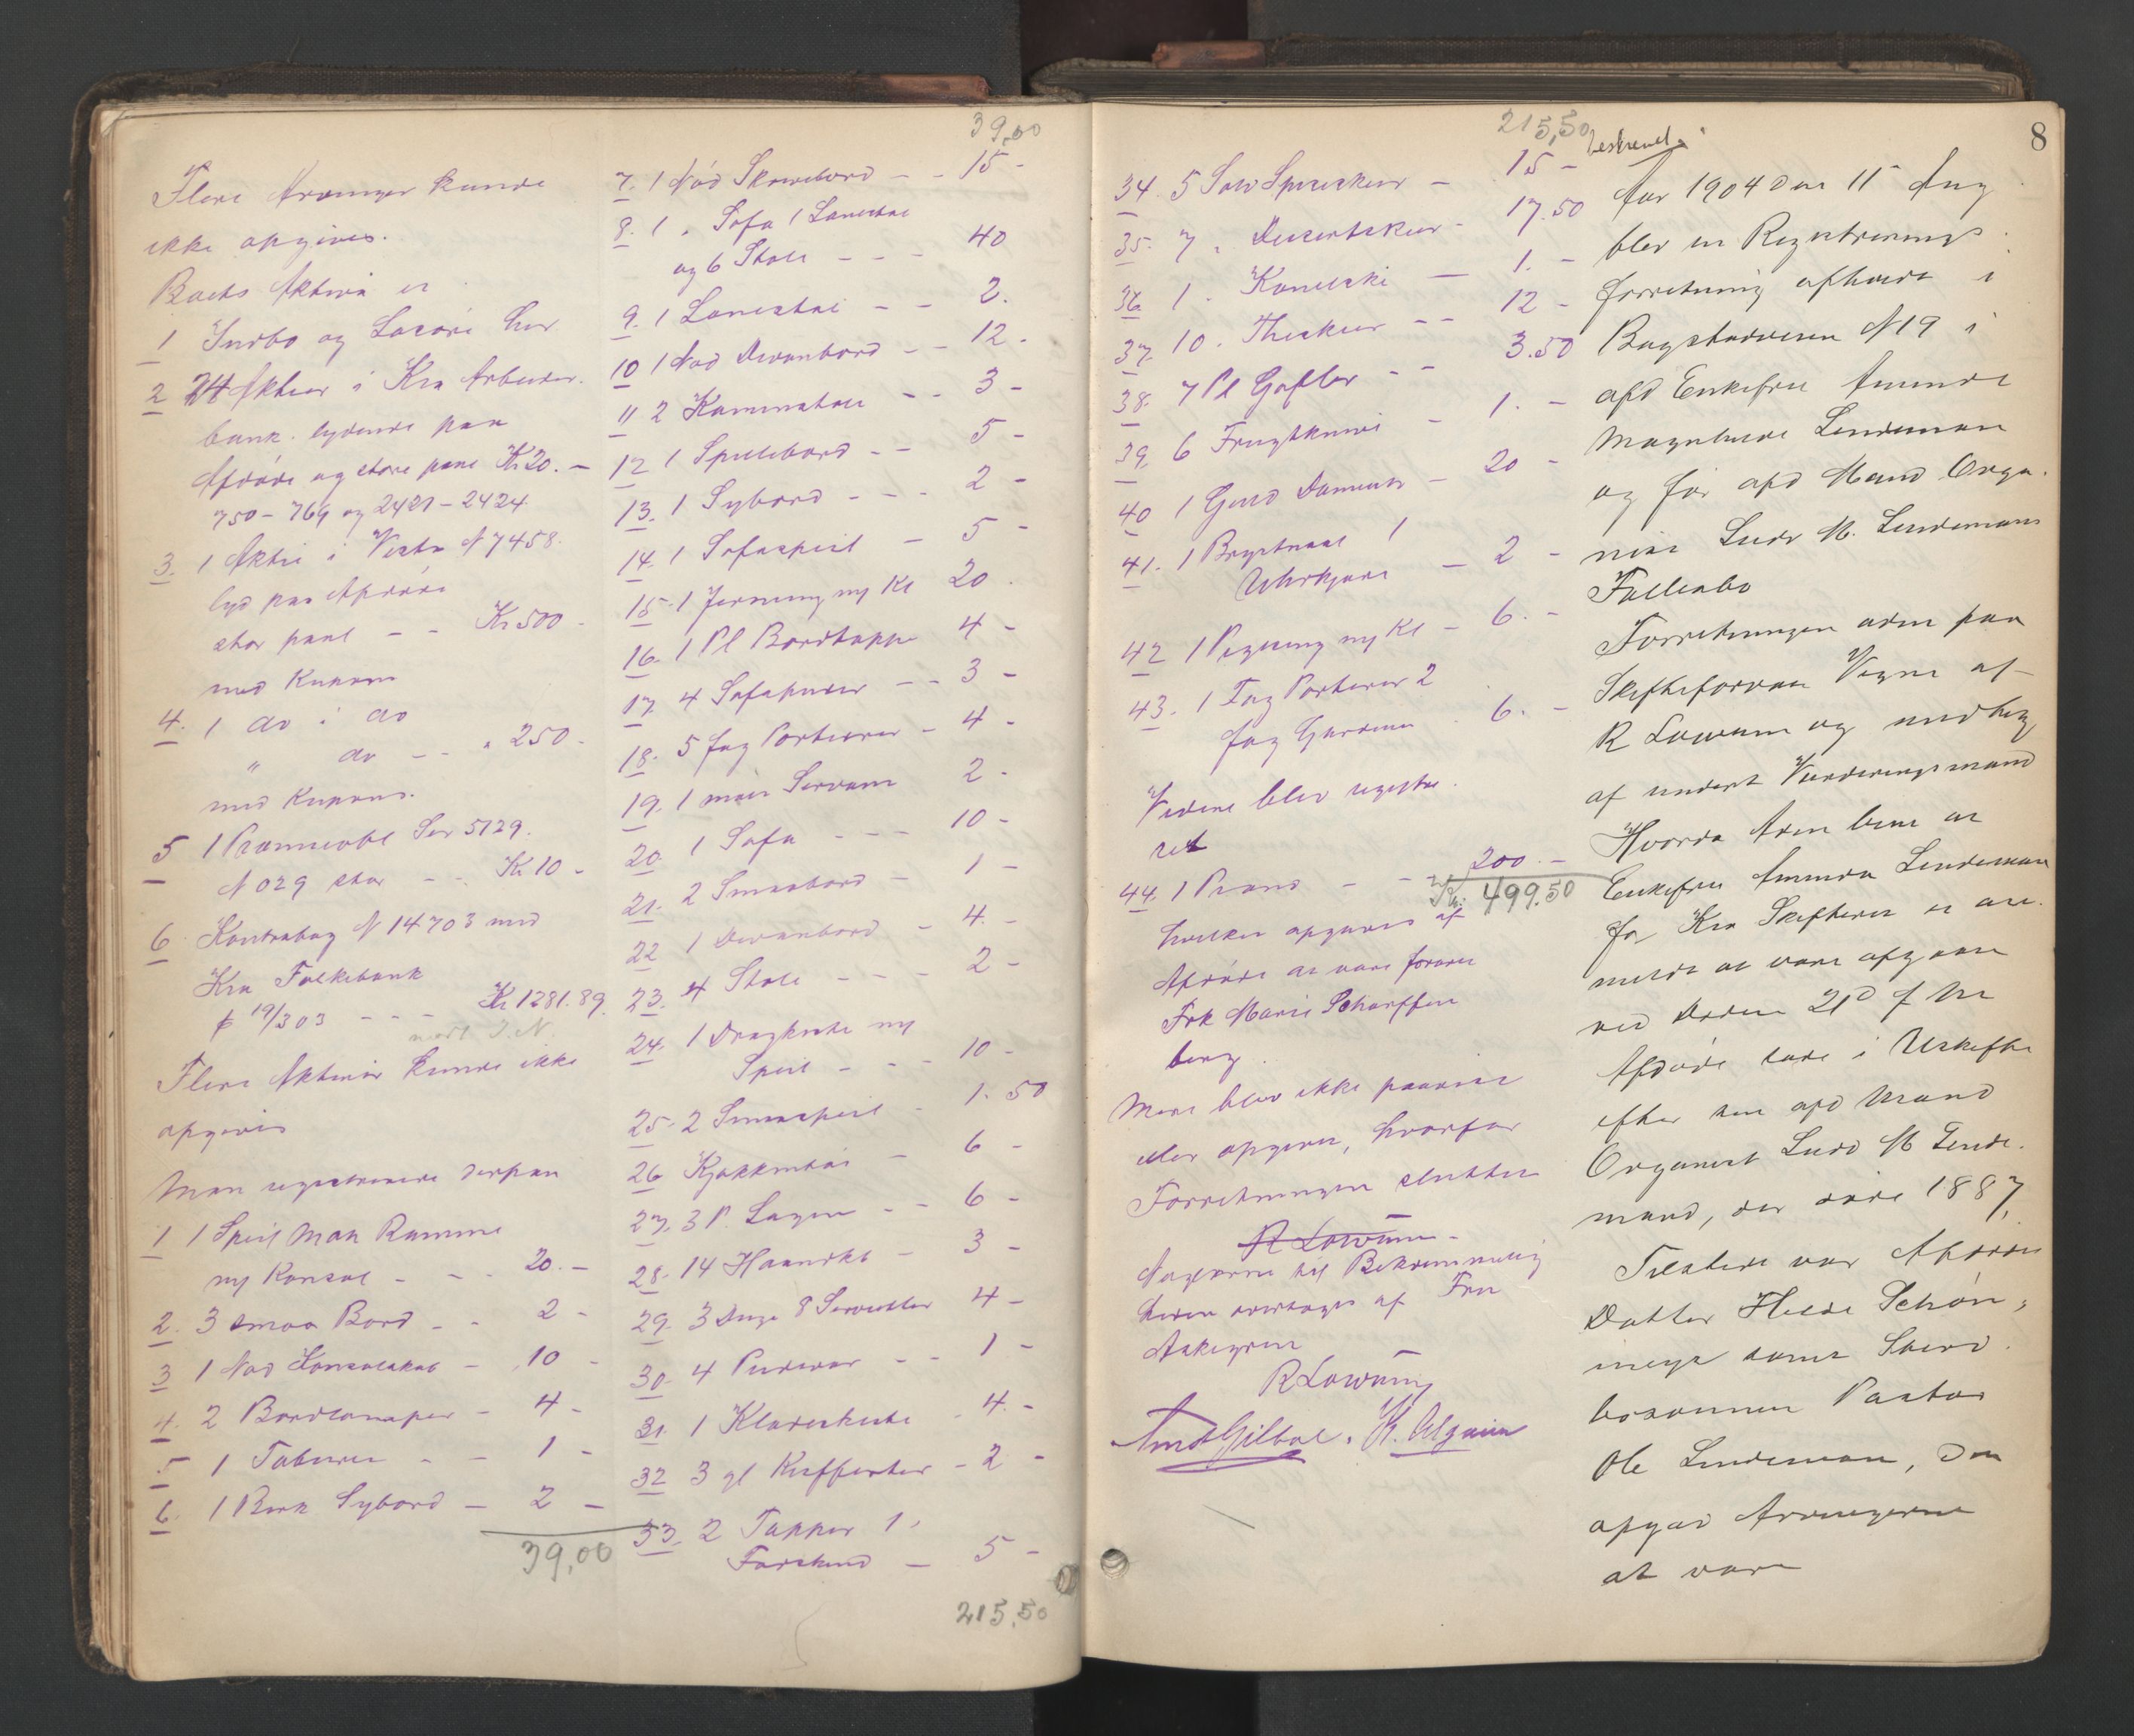 Flere Arvinger kunde
ikke opgives.
Boets Aktiva er
1 Indbo og Løsøre her
2 24 Aktier i Kra Arbeider-
bank. lydende paa
Afdøde og store pane Kr 20. –
750 – 769 og 2421 – 2424
3. 1 Aktie i Vesta N 7458.
lyd paa Afdøde
stor paal – – Kr 500 –
med Kupons
4. 1 do i do
" do – – " 250 –
med Kupons.
5 1 Præmieobl Ser 5129.
N 029 stor – – Kr 10 –
6 Kontrabog N 14703 med
Kra Folkebank
p 19/3 03 – – – Kr 1281.89.
Flere Aktiver kunde ikke
opgives
Man registrerede derpaa
1 1 Speil Mah Ramme
og Konsol – – – 20. –
2. 3 smaa Bord – – 2 –
3 1 Nød Konsolskab – 10 –
4. 2 Bordlamper – 4 –
5 1 Taburet – – 1 –
6. 1 Birk Sybord – 2 –
39,00
39,00
7. 1 Nød Skrivebord – – 15 –
8. 1 " Sofa 1 Lænestol
og 6 Stole – – – 40
9. 1 Lænestol – – 2.
10 1 Nød Divanbord – – 12 –
11 2 Kurvestole – – 3 –
12 1 Spillebord – – 5 –
13. 1 Sybord – – – 2 –
14. 1 Sofaspeil – 5 –
15. 1 Jernseng og Kl 20.
16. 1 Pl Bordteppe 4 –
17. 4 Sofaputer – – 3 –
18. 5 Fag Portierer – 4 –
19. 1 Servante 2 –
20. 1 Sofa – – – 10 –
21. 2 Smaabord – 1 –
22 1 Divanbord – 4. –
23. 4 Stole – – – 2 –
24. 1 Dragkiste og
Speil – – – 10 –
25. 2 Smaaspeil – 1. 50
26 Kjøkkentøi – 6 –
27. 3 P. Lagen – – 6 –
28. 14 Haandkl – 3 –
29. 3 Duge 8 Servietter 4 –
30. 4 Pudevar – – 1 –
31. 1 Klædeskiste – 4. –
32 3 gl Kufferter – 2 –
33. 2 Tepper 1
Forskind – 5 –
215,50
215,50
34. 5 Sølv Spiseskeer – 15 –
35. 7 " Dessertskeer – 17.50
36. 1 " – 1. –
37. 10 " Theskeer – – 12 –
38. 7 Pl Gafler – – 3.50
39. 6 Frugtknive – 1. –
40 1 Guld Dameuhr – 20 –
41. 1 Brystnaal 1
Uhrkjæde – 2 –
42 1 Pigeseng og Kl – 6. –
43. 1 Fag Portierer 2
Fag Gardiner – 6. –
Videre blev registre-
ret
44. 1 Piano – – 200 –
499.50
hvilket opgaves af
Afdøde at være foræret
Frk Marie Scharffen
berg.
Mere blev ikke paavist
eller opgivet, hvorfor
Forretningen sluttet
R Lowum
Nøglerne til Bekvemmelig
heden overtoges af Fru
R Lowum
8
Aar 1904 den 11 Aug
blev en Registrerings-
forretning afholdt i
Bogstadveien N 19 i
afd Enkefru Aminda
Magnhilde Lindeman
og før afd Mand Orga-
nist Ludv M. Lindemans
Fællesbo
Forretningen adm paa
Skifteforvalt Vegne af
R Lowum og medtog
af undert Vurderingsmænd
Hvorda Adm bem at
Enkefru Aminda Lindeman
for Kra Skifteret er an-
meldt at være afgaaet
ved Døden 21d f M
Afdøde sad i Uskiftet
efter sin afd Mand
Organist Ludv M Linde-
mand, der døde 1887,
Tilstede var Afdødes
Datter Hilda Schøn-
inge samt Sted-
børnenes Pastor
Ole Lindeman, Den
opgav Arvingerne
at være